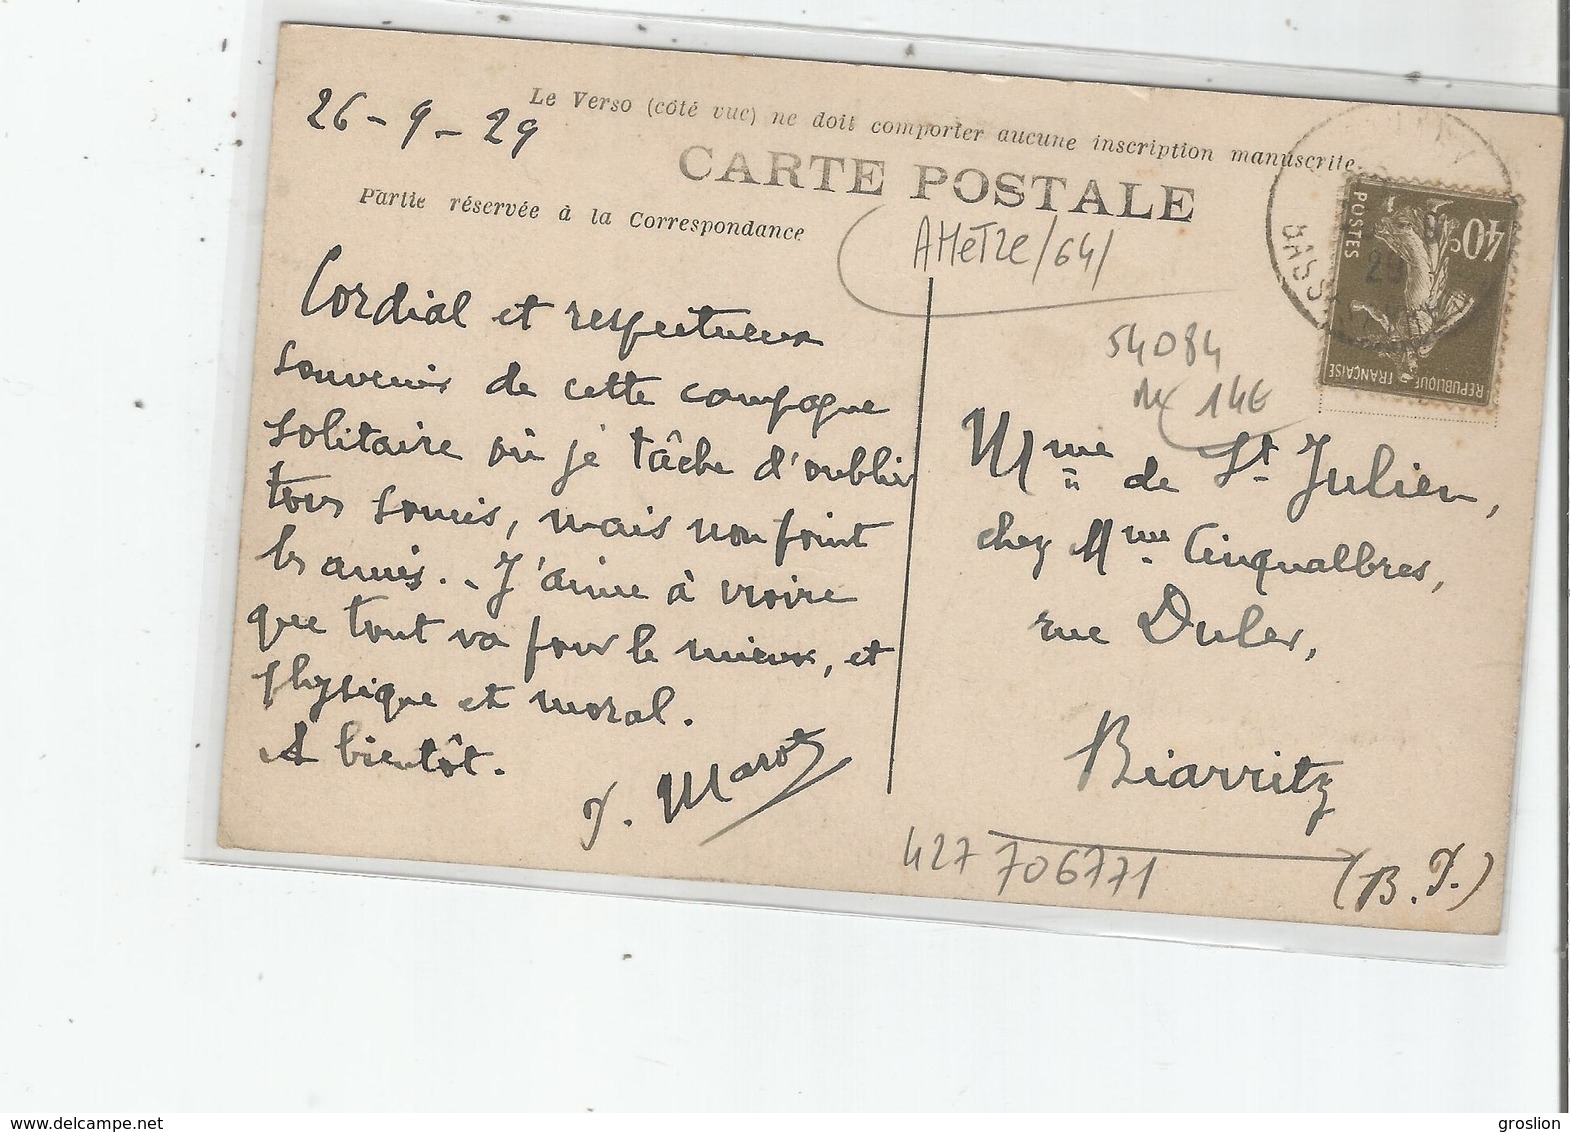 26-9-29
Le Verso (côté vue) ne doit comporter aucune inscription manuscrite.
CARTE POSTALE
Partie réservée à la Correspondance
AHETZE/64/
Cordial et respectueux
souvenir de cette campagne
solitaire où je tâche d'oublier
tous soucis, mais non point
les amis.. - J'aime à croire
que tout va pour le mieux, et
physique et moral.
A bientôt.
J. Marot
40c
POSTES
REPUBLIQUE FRANÇAISE
29
BASSES
54084
14€
Mme de St. Julien,
chez Mme Cinqualbres,
rue Duler,
Biarritz
(B.P.)
427 706771
groslion